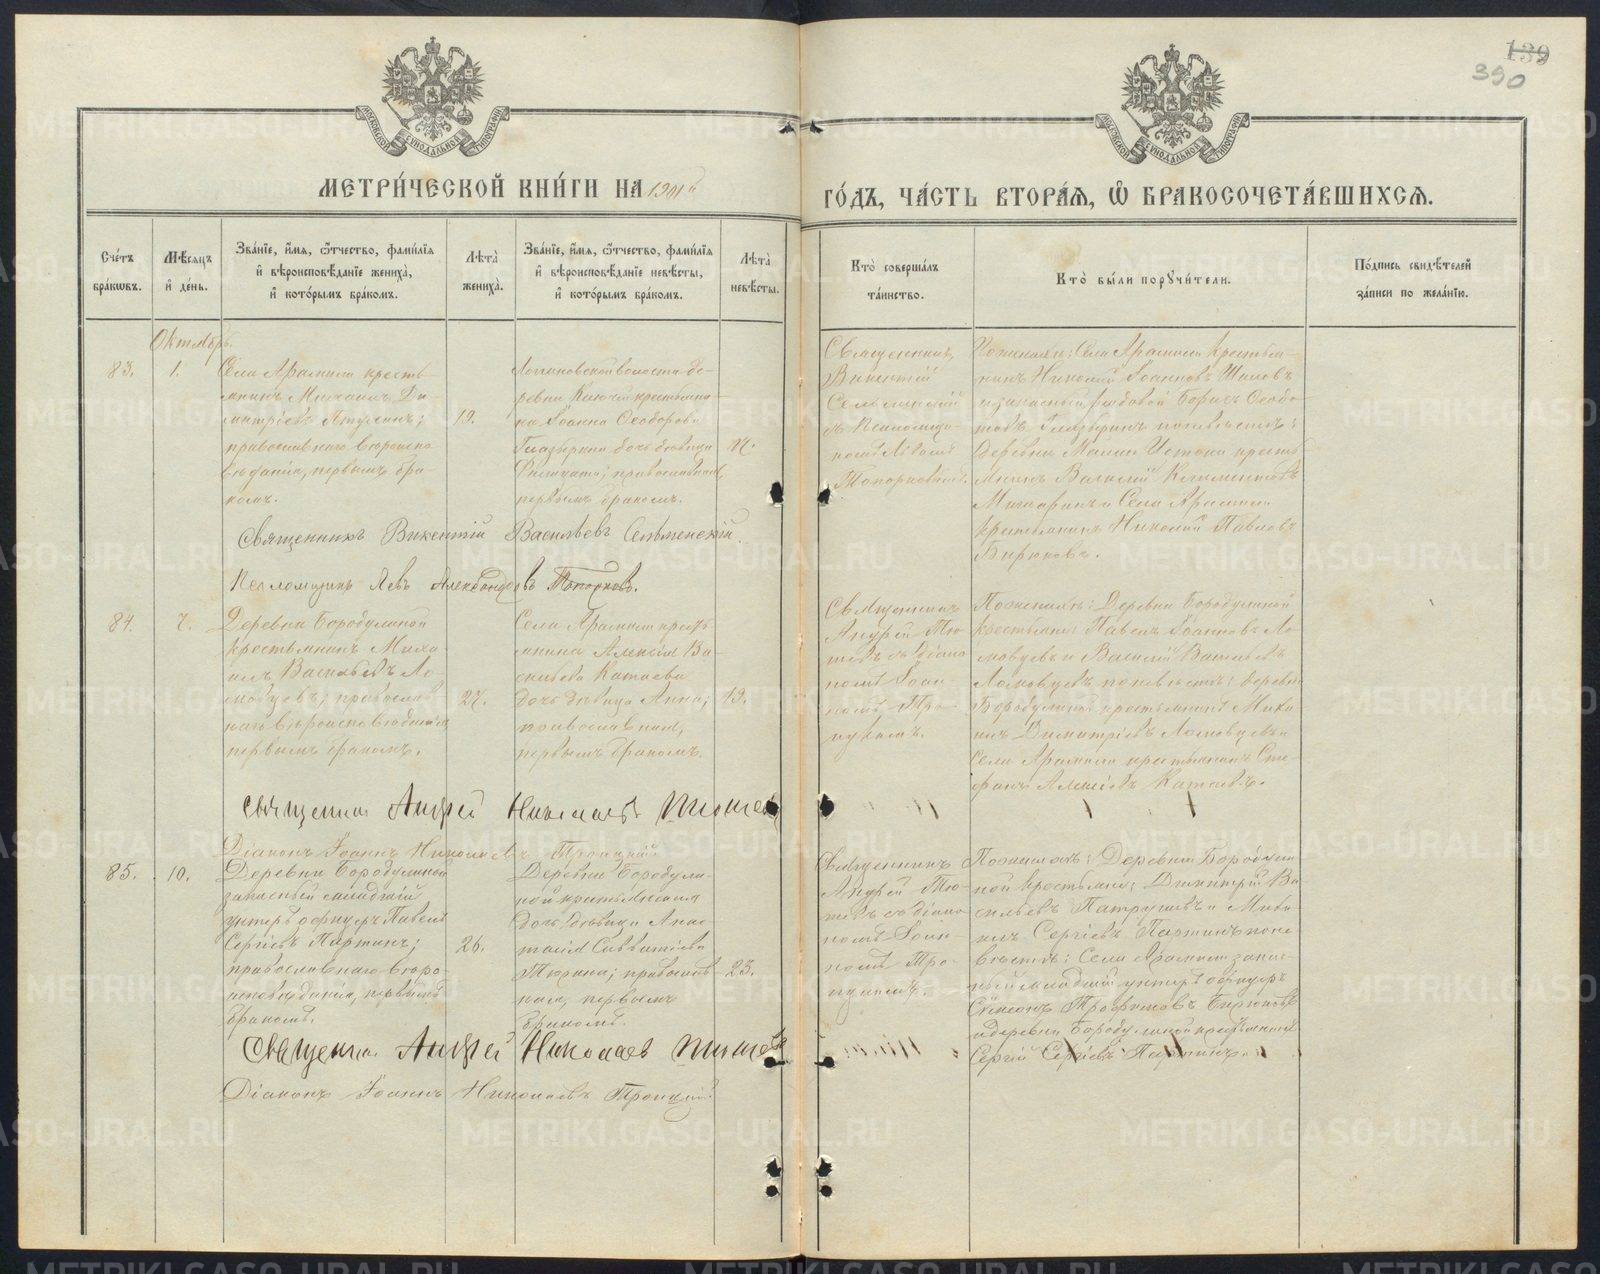 139
390
МОСКОВСКОЙ СѴНОДАЛЬНОЙ ТИПОГРАФІИ
МОСКОВСКОЙ СѴНОДАЛЬНОЙ ТИПОГРАФІИ
МЕТРИ́ЧЕСКОЙ КНИ́ГИ НА 1901 й
ГО́ДЪ, ЧА́СТЬ ВТОРА́Ѧ, Ѡ҆ БРАКОСОЧЕТА́ВШИХСѦ.
Сче́тъ бра́кѡвъ.
Мѣ́сѧцъ и҆ де́нь.
Зва́нїе, и҆́мѧ, ѻ҆́тчество, фами́лїѧ и҆ вѣроисповѣ́данїе жениха̀, и҆ кото́рымъ бра́комъ.
Лѣ́та жениха̀.
Зва́нїе, и҆́мѧ, ѻ҆́тчество, фами́лїѧ и҆ вѣроисповѣ́данїе невѣ́сты, и҆ кото́рымъ бра́комъ.
Лѣ́та невѣ́сты.
Кто̀ соверша́лъ та́инство.
Кто̀ бы́ли порꙋчи́тели.
По́дпись свидѣ́телей за́писи по жела́нїю.
Октябрь.
83.
1.
Села Арамили кресть-
янинъ Михаилъ Ди-
митріевъ
православнаго вѣроиспо-
вѣданія, первымъ бра-
комъ.
19.
волости де-
ревни крестьяни-
на Іоанна Ѳеодорова
Глазырина дочь дѣвица
православная,
первымъ бракомъ.
Священникъ
Викентій
Сельменскій
съ псаломщи-
комъ Львомъ
Топорковымъ.
По женихѣ: Села Арамили крестья-
нинъ Николай Іоанновъ Шиловъ
и запасный рядовой Борисъ Ѳеодо-
ровъ Глазыринъ по невѣстѣ:
деревни Малаго Истока кресть-
янинъ Василій Климентовъ
и Села Арамили
крестьянинъ Николай Павловъ
Бирюковъ.
Священникъ Викентій Васильевъ Сельменскій.
Псаломщикъ Левъ Александровъ Топорковъ.
84.
7.
Деревни Бородулиной
крестьянинъ Миха-
илъ Васильевъ Ло-
мовцевъ; православ-
наго вѣроисповѣданія,
первымъ бракомъ.
27.
Села Арамили кресть-
янина Алексія Ва-
сильева Катаева
дочь дѣвица Анна;
православная,
первымъ бракомъ.
19.
Священникъ
Андрей Тю-
шевъ съ діако-
номъ Іоан-
номъ Тро-
ицкимъ.
По женихѣ: Деревни Бородулиной
крестьяне: Павелъ Іоанновъ Ло-
мовцевъ и Василій Васильевъ
Ломовцевъ по невѣстѣ: деревни
Бородулиной крестьянинъ Миха-
илъ Димитріевъ Ломовцевъ и
Села Арамили крестьянинъ Сте-
фанъ Алексіевъ Катаевъ.
Священникъ Андрей Николаевъ Тюшевъ
Діаконъ Іоаннъ Николаевъ Троицкій
85.
10.
Деревни Бородулиной
запасный младшій
унтеръ офицеръ Павелъ
Сергіевъ Партинъ;
православнаго вѣро-
исповѣданія, первымъ
бракомъ.
26.
Деревни Бородули-
ной крестьянина
дочь дѣвица Анас-
тасія Савватіева
Тюрина; православ-
ная, первымъ
бракомъ.
23.
Священникъ
Андрей Тю-
шевъ съ діако-
номъ Іоан-
номъ Тро-
ицкимъ.
По женихѣ: Деревни Бородули-
ной крестьяне; Димитрій Ва-
сильевъ Патрушевъ и Миха-
илъ Сергіевъ Партинъ по не-
вѣстѣ: Села Арамили запас-
ный младшій унтеръ офицеръ
Симеонъ Трофимовъ Бирюковъ
и деревни Бородулиной крестьянинъ
Сергій Сергіевъ Партинъ.
Священникъ Андрей Николаевъ Тюшевъ
Діаконъ Іоаннъ Николаевъ Троицкій
METRIKI.GASO-URAL.RU